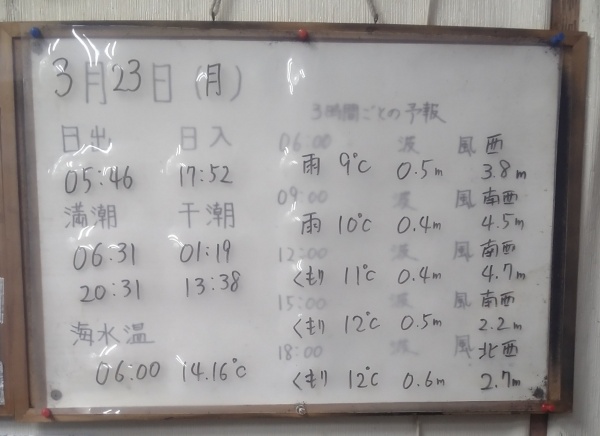 3月23日(月)
日出 日入
05:46 17:52
満潮 干潮
06:31 01:19
20:31 13:38
海水温
06:00 14.16℃
3時間ごとの予報
06:00 波 風 西
雨 9℃ 0.5m 3.8m
09:00 波 風 南西
雨 10℃ 0.4m 4.5m
12:00 波 風 南西
くもり 11℃ 0.4m 4.7m
15:00 波 風 南西
くもり 12℃ 0.5m 2.2m
18:00 波 風 北西
くもり 12℃ 0.6m 2.7m